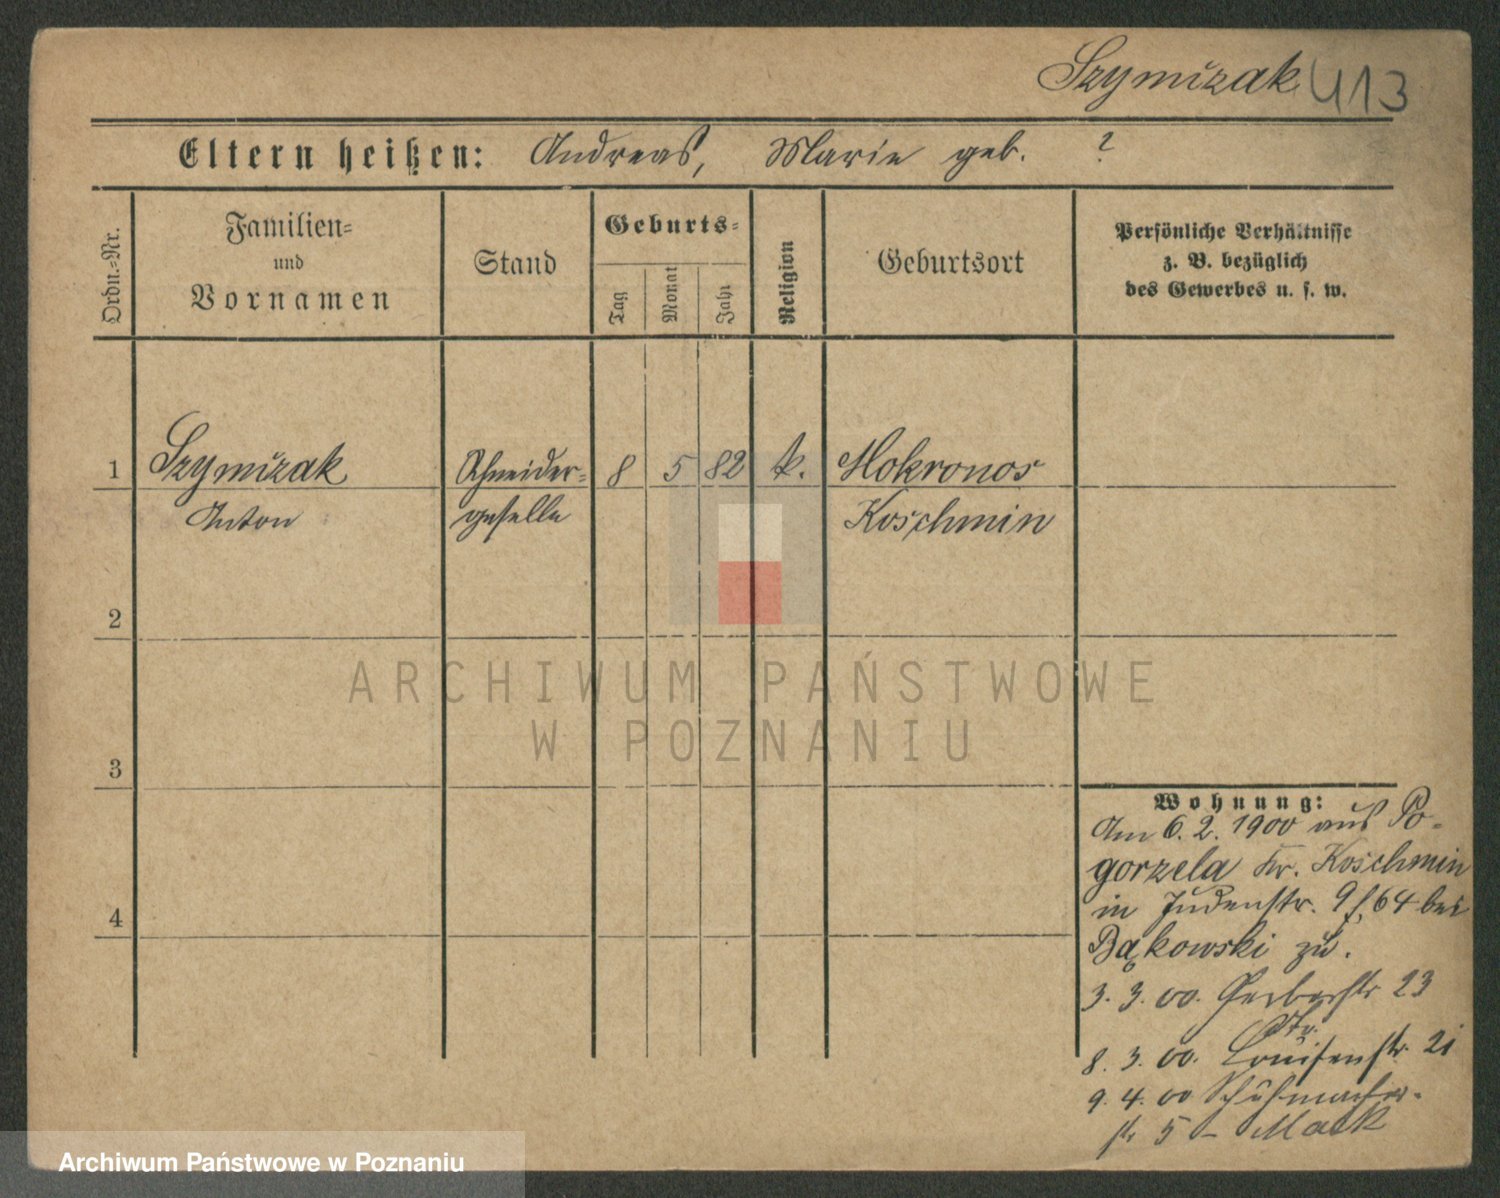 Szymczak 413
Eltern heißen: Andreas, Marie geb. ?
Ordn.-Nr.
Familien-
und
Vornamen
Stand
Geburts-
Tag
Monat
Jahr
Religion
Geburtsort
Persönliche Verhältnisse
z. B. bezüglich
des Gewerbes u. s. w.
1 Szymczak Schneider- 8 5 82 k. Mokronos
Anton geselle Koschmin
2
ARCHIWUM PAŃSTWOWE
W POZNANIU
3
Wohnung:
Am 6.2.1900 aus Po-
gorzela Kr. Koschmin
in Judenstr. 9/64 bei
4
Bąkowski zu.
3. 3. 00. Gerberstr 23
8. 3. 00. Louisenstr. 21
9. 4. 00 Schuhmacher-
str 5 - Mack
Archiwum Państwowe w Poznaniu